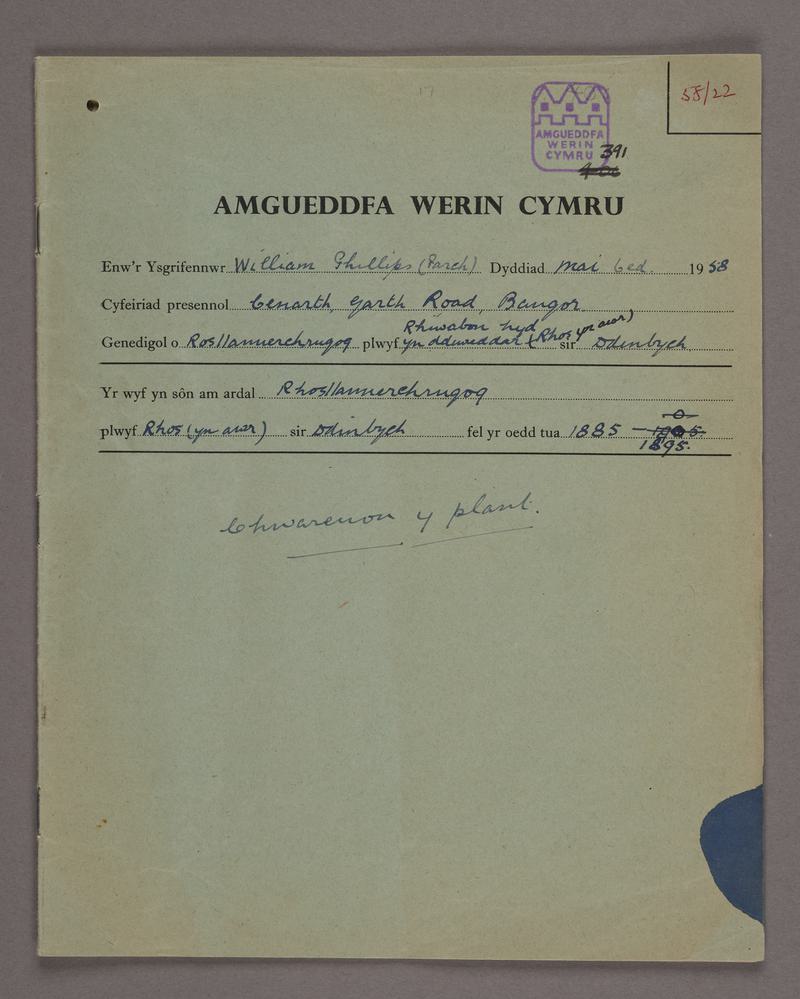 58/22
AMGUEDDFA
WERIN
CYMRU 391
AMGUEDDFA WERIN CYMRU
Enw'r Ysgrifennwr William Phillips (Parch) Dyddiad Mai 6ed. 1958
Cyfeiriad presennol Cenarth, Garth Road, Bangor
Rhiwabon hyd
Genedigol o Rosllannerchrugog plwyf yn ddiweddar (Rhos yn awr) sir Ddinbych
Yr wyf yn sôn am ardal Rhosllannerchrugog
plwyf Rhos (yn awr) sir Ddinbych fel yr oedd tua 1885 – 1905.
1895.
Chwareuon y plant.